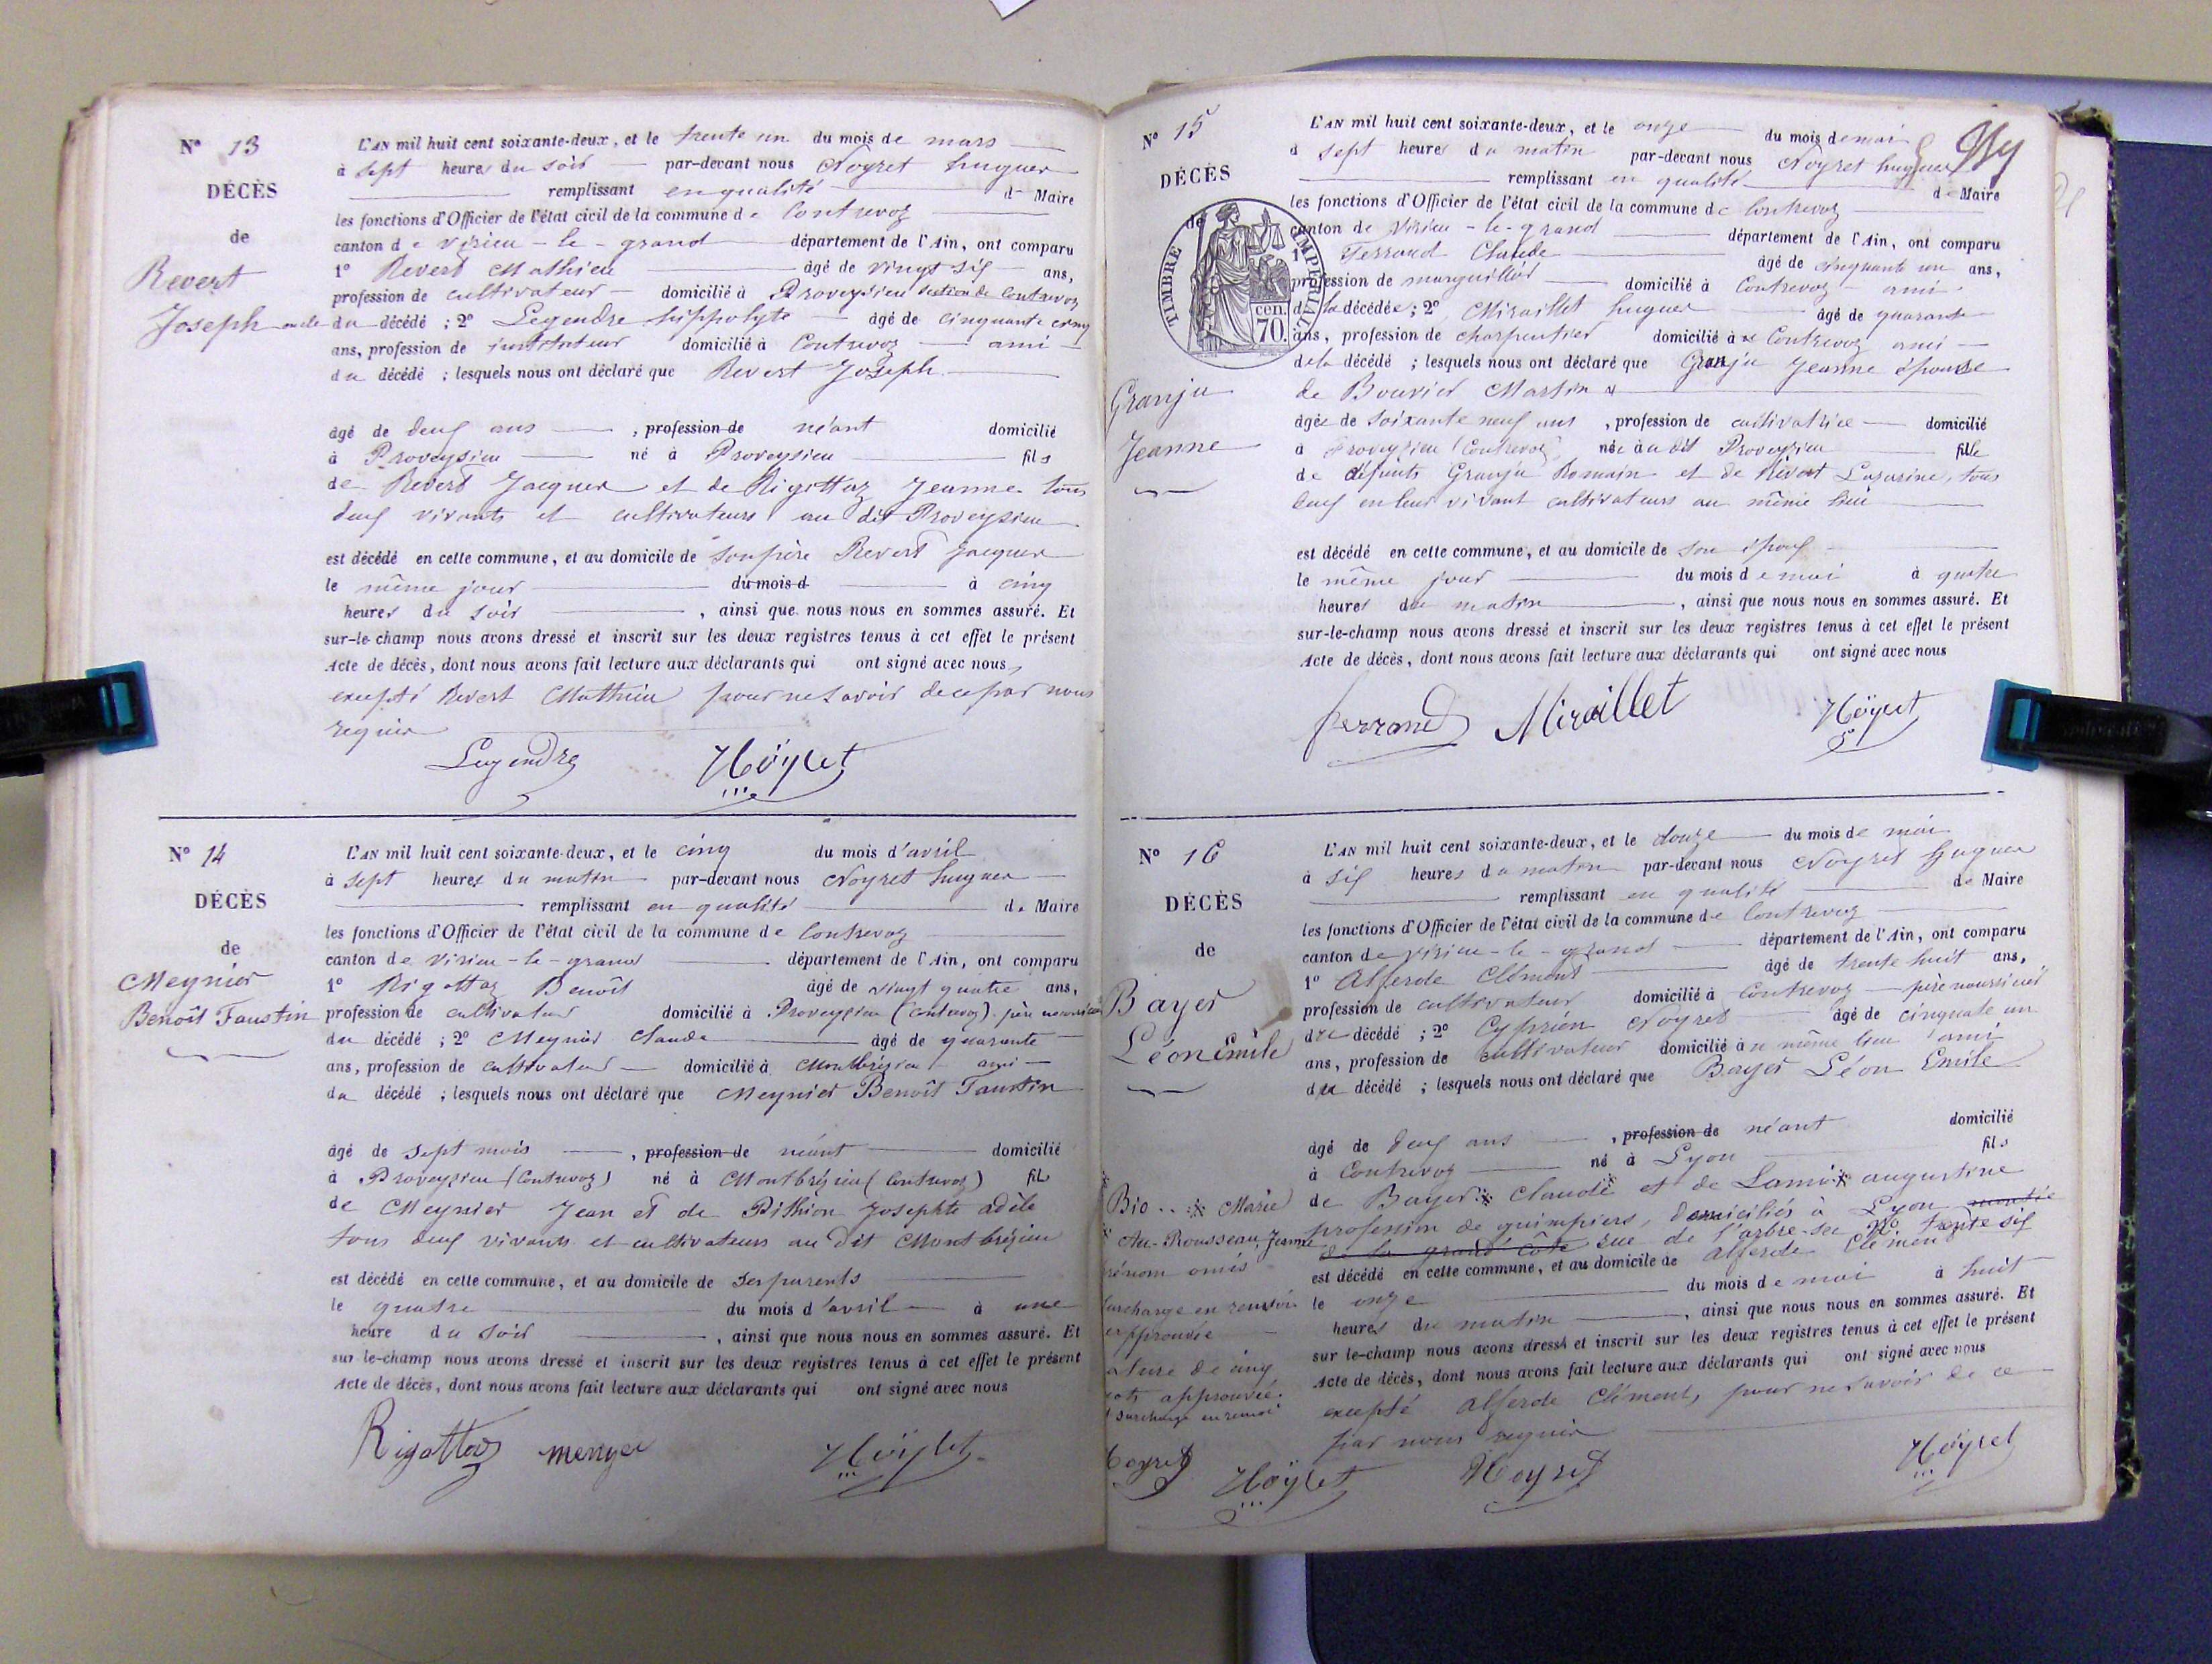 N° 13
DÉCÈS
de
Revert
Joseph
L'AN mil huit cent soixante-deux, et le trente un du mois de mars
à sept heures du soir par-devant nous Noyret hugues
remplissant en qualité de Maire
les fonctions d'Officier de l'état civil de la commune de Contrevoz
canton de virieu-le-grand département de l'Ain, ont comparu
1° Revert Mathieu âgé de vingt six ans,
profession de cultivateur domicilié à Proveysieu section de Contrevoz
oncle du décédé ; 2° Legendre hippolyte âgé de cinquante cinq
ans, profession de instituteur domicilié à Contrevoz ami
du décédé ; lesquels nous ont déclaré que Revert Joseph
âgé de deux ans , profession de néant domicilié
à Proveysieu né à Proveysieu fils
de Revert Jacques et de Rigottaz Jeanne tous
deux vivants et cultivateurs au dit Proveysieu
est décédé en cette commune, et au domicile de son père Revert jacques
le même jour du mois d à cinq
heures du soir , ainsi que nous nous en sommes assuré. Et
sur-le-champ nous avons dressé et inscrit sur les deux registres tenus à cet effet le présent
Acte de décès, dont nous avons fait lecture aux déclarants qui ont signé avec nous,
excepté Revert Mathieu pour ne savoir de ce par nous
requis
Legendre Noÿret
N° 14
DÉCÈS
de
Meynier
Benoît Faustin
L'AN mil huit cent soixante-deux, et le cinq du mois d'avril
à sept heures du matin par-devant nous Noyret hugues
remplissant en qualité de Maire
les fonctions d'Officier de l'état civil de la commune de Contrevoz
canton de virieu-le-grand département de l'Ain, ont comparu
1° Rigottaz Benoît âgé de vingt quatre ans,
profession de cultivateur domicilié à Proveysieu (Contrevoz) père nourricier
du décédé ; 2° Meynier Claude âgé de quarante
ans, profession de cultivateur domicilié à Montbrézieu ami
du décédé ; lesquels nous ont déclaré que Meynier Benoît Faustin
âgé de sept mois , profession de néant domicilié
à Proveysieu (Contrevoz) né à Montbrézieu (Contrevoz) fils
de Meynier Jean et de Pithion Josephte adèle
tous deux vivants et cultivateurs au dit Montbrézieu
est décédé en cette commune, et au domicile de ses parents
le quatre du mois d'avril à une
heure du soir , ainsi que nous nous en sommes assuré. Et
sur-le-champ nous avons dressé et inscrit sur les deux registres tenus à cet effet le présent
Acte de décès, dont nous avons fait lecture aux déclarants qui ont signé avec nous
Rigottaz Noÿret
N° 15
DÉCÈS
de
TIMBRE IMPÉRIAL
70 cen.
Granju
Jeanne
L'AN mil huit cent soixante-deux, et le onze du mois de mai
à sept heures du matin par-devant nous Noyret hugues
remplissant en qualité de Maire
les fonctions d'Officier de l'état civil de la commune de Contrevoz
canton de virieu-le-grand département de l'Ain, ont comparu
1° Ferrand Claude âgé de cinquante un ans,
profession de marguillier domicilié à Contrevoz ami
de la décédée ; 2° Miraillet hugues âgé de quarante
ans, profession de charpentier domicilié à Contrevoz ami
de la décédé ; lesquels nous ont déclaré que Granju Jeanne épouse
de Bouvier Martin
âgée de soixante neuf ans , profession de cultivatrice domicilié
à Proveysieu (Contrevoz) née au dit Proveysieu fille
de défunts Granju Romain et de Revert Lazarine, tous
deux en leur vivant cultivateurs au même lieu
est décédé en cette commune, et au domicile de son époux
le même jour du mois de mai à quatre
heures du matin , ainsi que nous nous en sommes assuré. Et
sur-le-champ nous avons dressé et inscrit sur les deux registres tenus à cet effet le présent
Acte de décès, dont nous avons fait lecture aux déclarants qui ont signé avec nous
ferrand Miraillet Noÿret
N° 16
DÉCÈS
de
Bayer
Léon Emile
L'AN mil huit cent soixante-deux, et le douze du mois de mai
à six heures du matin par-devant nous Noyret hugues
remplissant en qualité de Maire
les fonctions d'Officier de l'état civil de la commune de Contrevoz
canton de virieu-le-grand département de l'Ain, ont comparu
1° Alferde Clément âgé de trente huit ans,
profession de cultivateur domicilié à Contrevoz père nourricier
du décédé ; 2° Cyprien Noyret âgé de cinquante un
ans, profession de cultivateur domicilié au même lieu ami
du décédé ; lesquels nous ont déclaré que Bayer Léon Emile
âgé de deux ans , profession de néant domicilié
à Contrevoz né à Lyon fils
de Bayer Claude et de Lami augustine
profession de guimpiers, domiciliés à Lyon montée
de la grand'côte rue de l'arbre-sec N° trente six
est décédé en cette commune, et au domicile de alferde Clément
le onze du mois de mai à huit
heures du matin , ainsi que nous nous en sommes assuré. Et
sur-le-champ nous avons dressé et inscrit sur les deux registres tenus à cet effet le présent
Acte de décès, dont nous avons fait lecture aux déclarants qui ont signé avec nous
excepté alferde Clément, pour ne savoir de ce
par nous requis
Marie
Rousseau, Jeanne
prénom omis
surcharge en renvoi
approuvée
rature de cinq
mots approuvée.
surcharge en renvoi
Noyret Noÿret Noyret Noÿret